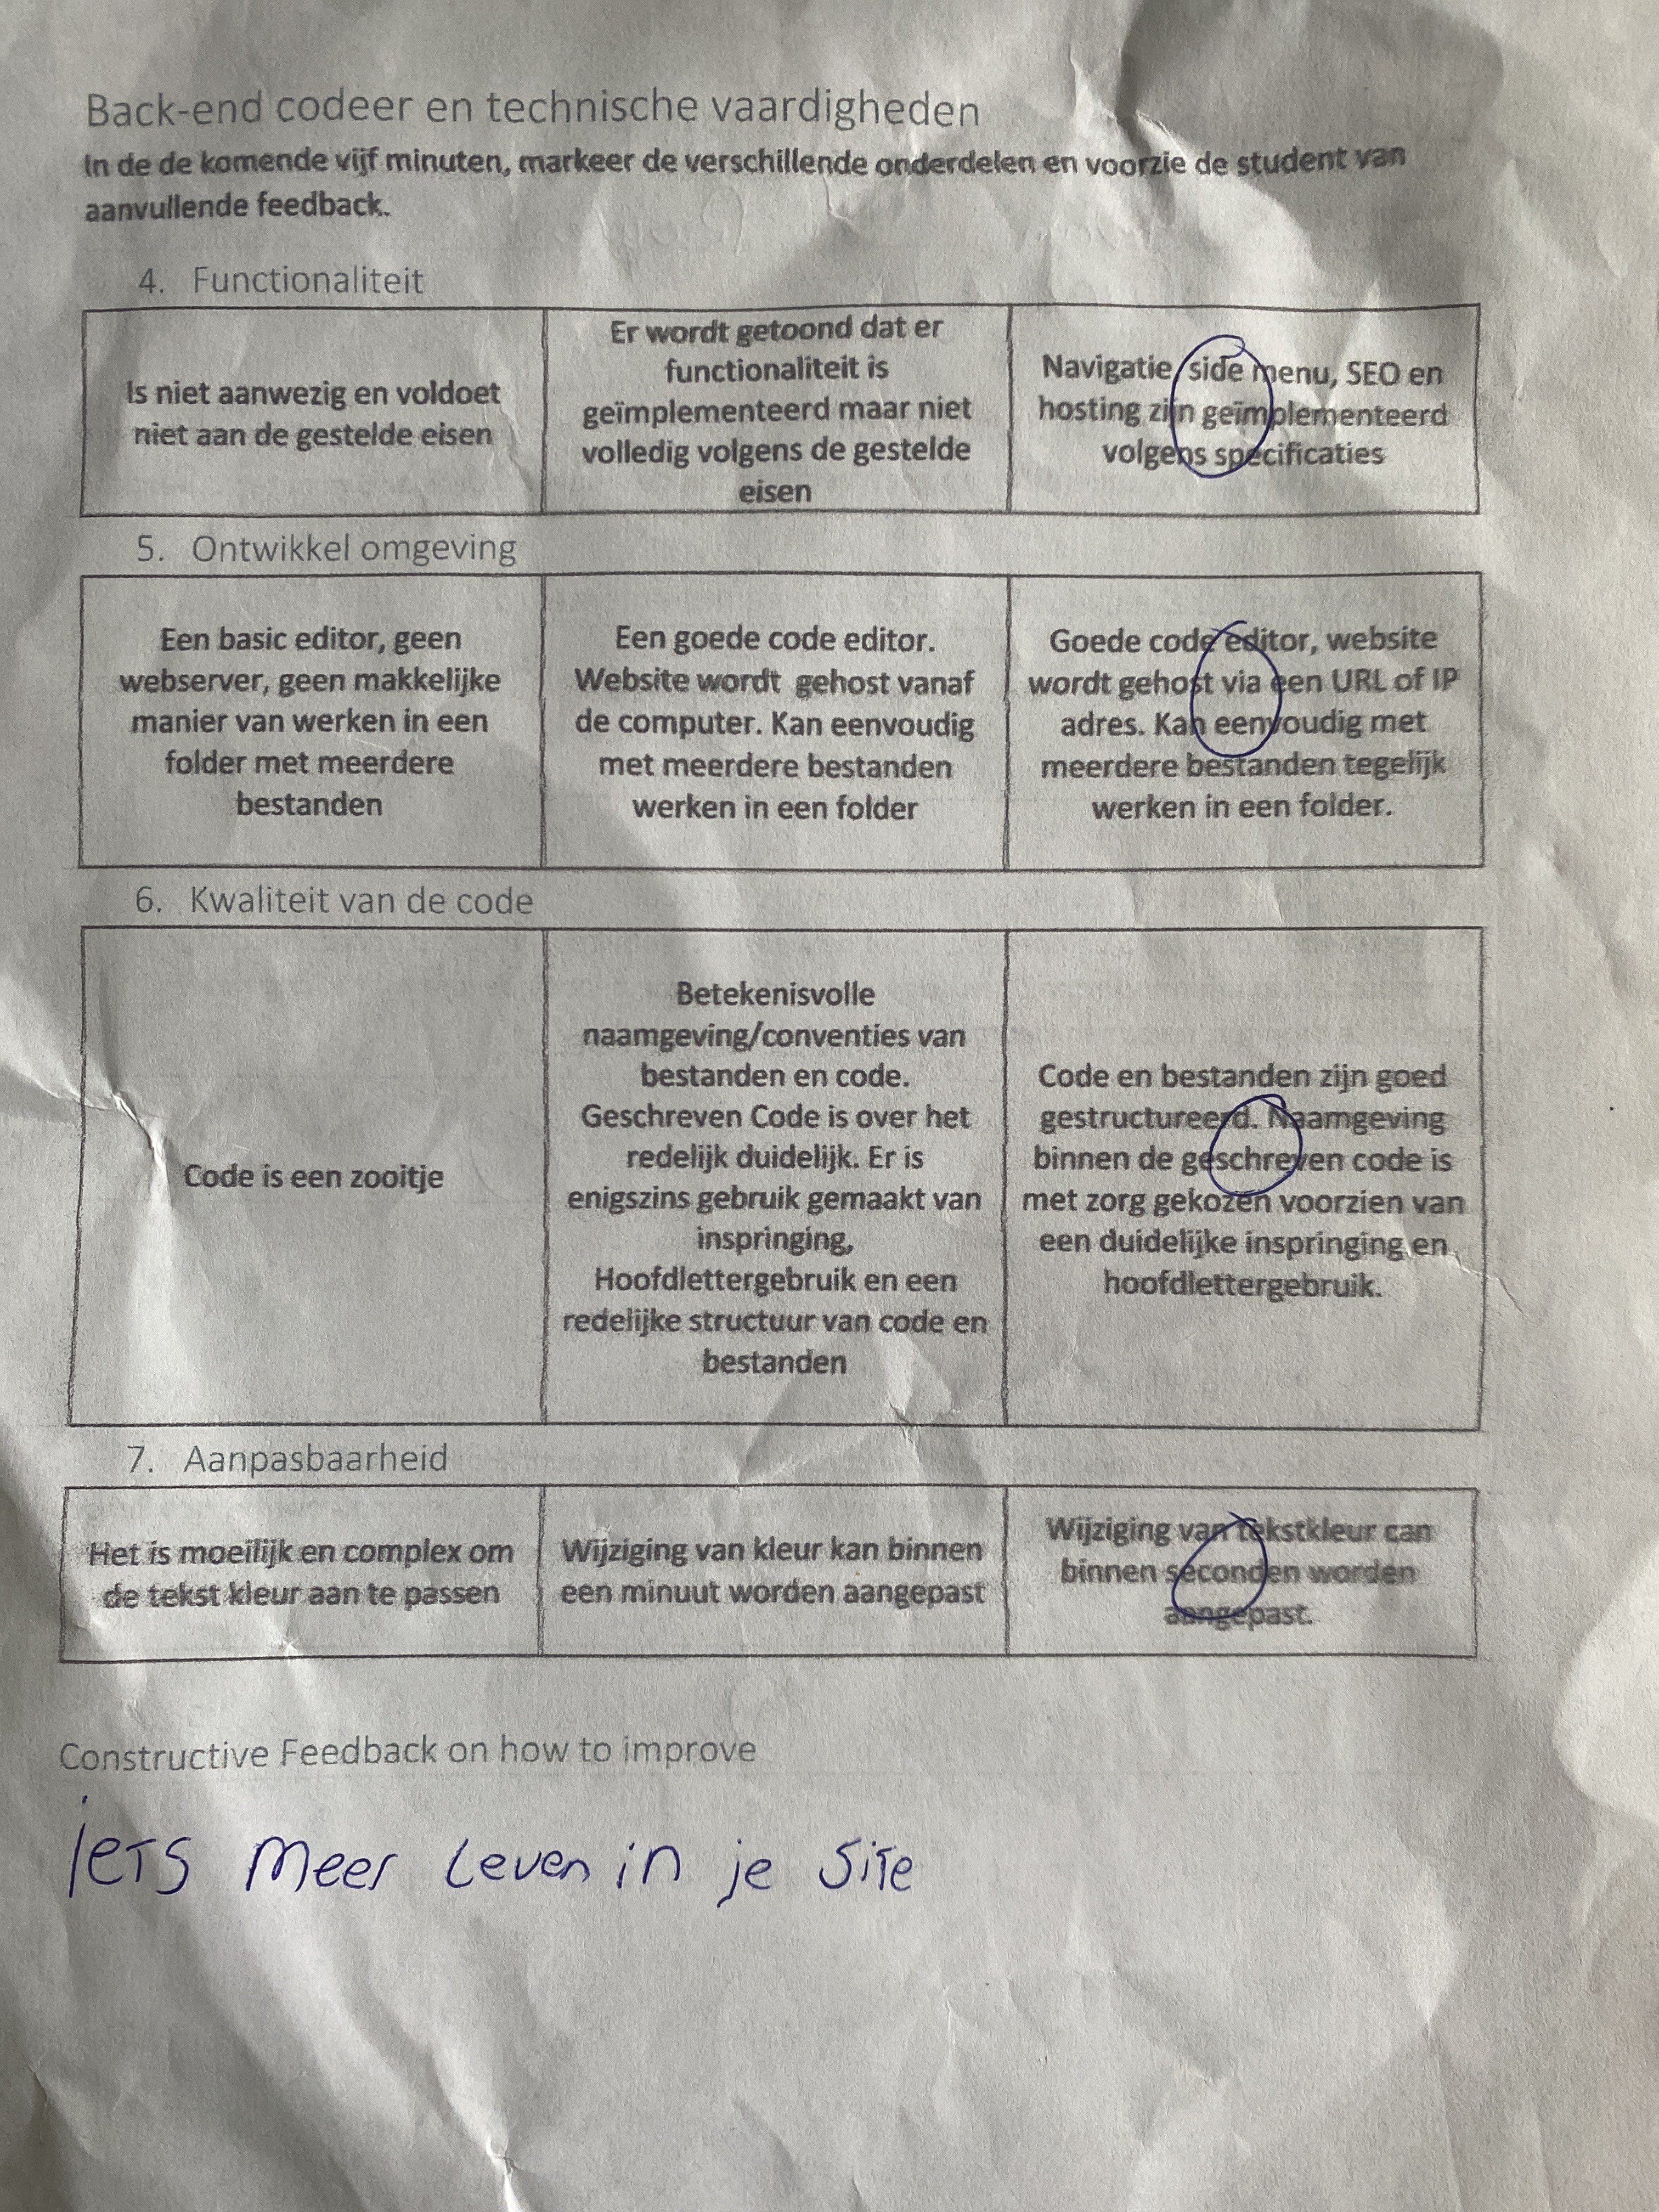 Back-end codeer en technische vaardigheden
In de de komende vijf minuten, markeer de verschillende onderdelen en voorzie de student van
aanvullende feedback.
4. Functionaliteit
Is niet aanwezig en voldoet
niet aan de gestelde eisen
Er wordt getoond dat er
functionaliteit is
geïmplementeerd maar niet
volledig volgens de gestelde
eisen
Navigatie, side menu, SEO en
hosting zijn geïmplementeerd
volgens specificaties
5. Ontwikkel omgeving
Een basic editor, geen
webserver, geen makkelijke
manier van werken in een
folder met meerdere
bestanden
Een goede code editor.
Website wordt gehost vanaf
de computer. Kan eenvoudig
met meerdere bestanden
werken in een folder
Goede code editor, website
wordt gehost via een URL of IP
adres. Kan eenvoudig met
meerdere bestanden tegelijk
werken in een folder.
6. Kwaliteit van de code
Code is een zooitje
Betekenisvolle
naamgeving/conventies van
bestanden en code.
Geschreven Code is over het
redelijk duidelijk. Er is
enigszins gebruik gemaakt van
inspringing,
Hoofdlettergebruik en een
redelijke structuur van code en
bestanden
Code en bestanden zijn goed
gestructureerd. Naamgeving
binnen de geschreven code is
met zorg gekozen voorzien van
een duidelijke inspringing en
hoofdlettergebruik.
7. Aanpasbaarheid
Het is moeilijk en complex om
de tekst kleur aan te passen
Wijziging van kleur kan binnen
een minuut worden aangepast
Wijziging van tekstkleur can
binnen seconden worden
aangepast.
Constructive Feedback on how to improve
iets meer leven in je site